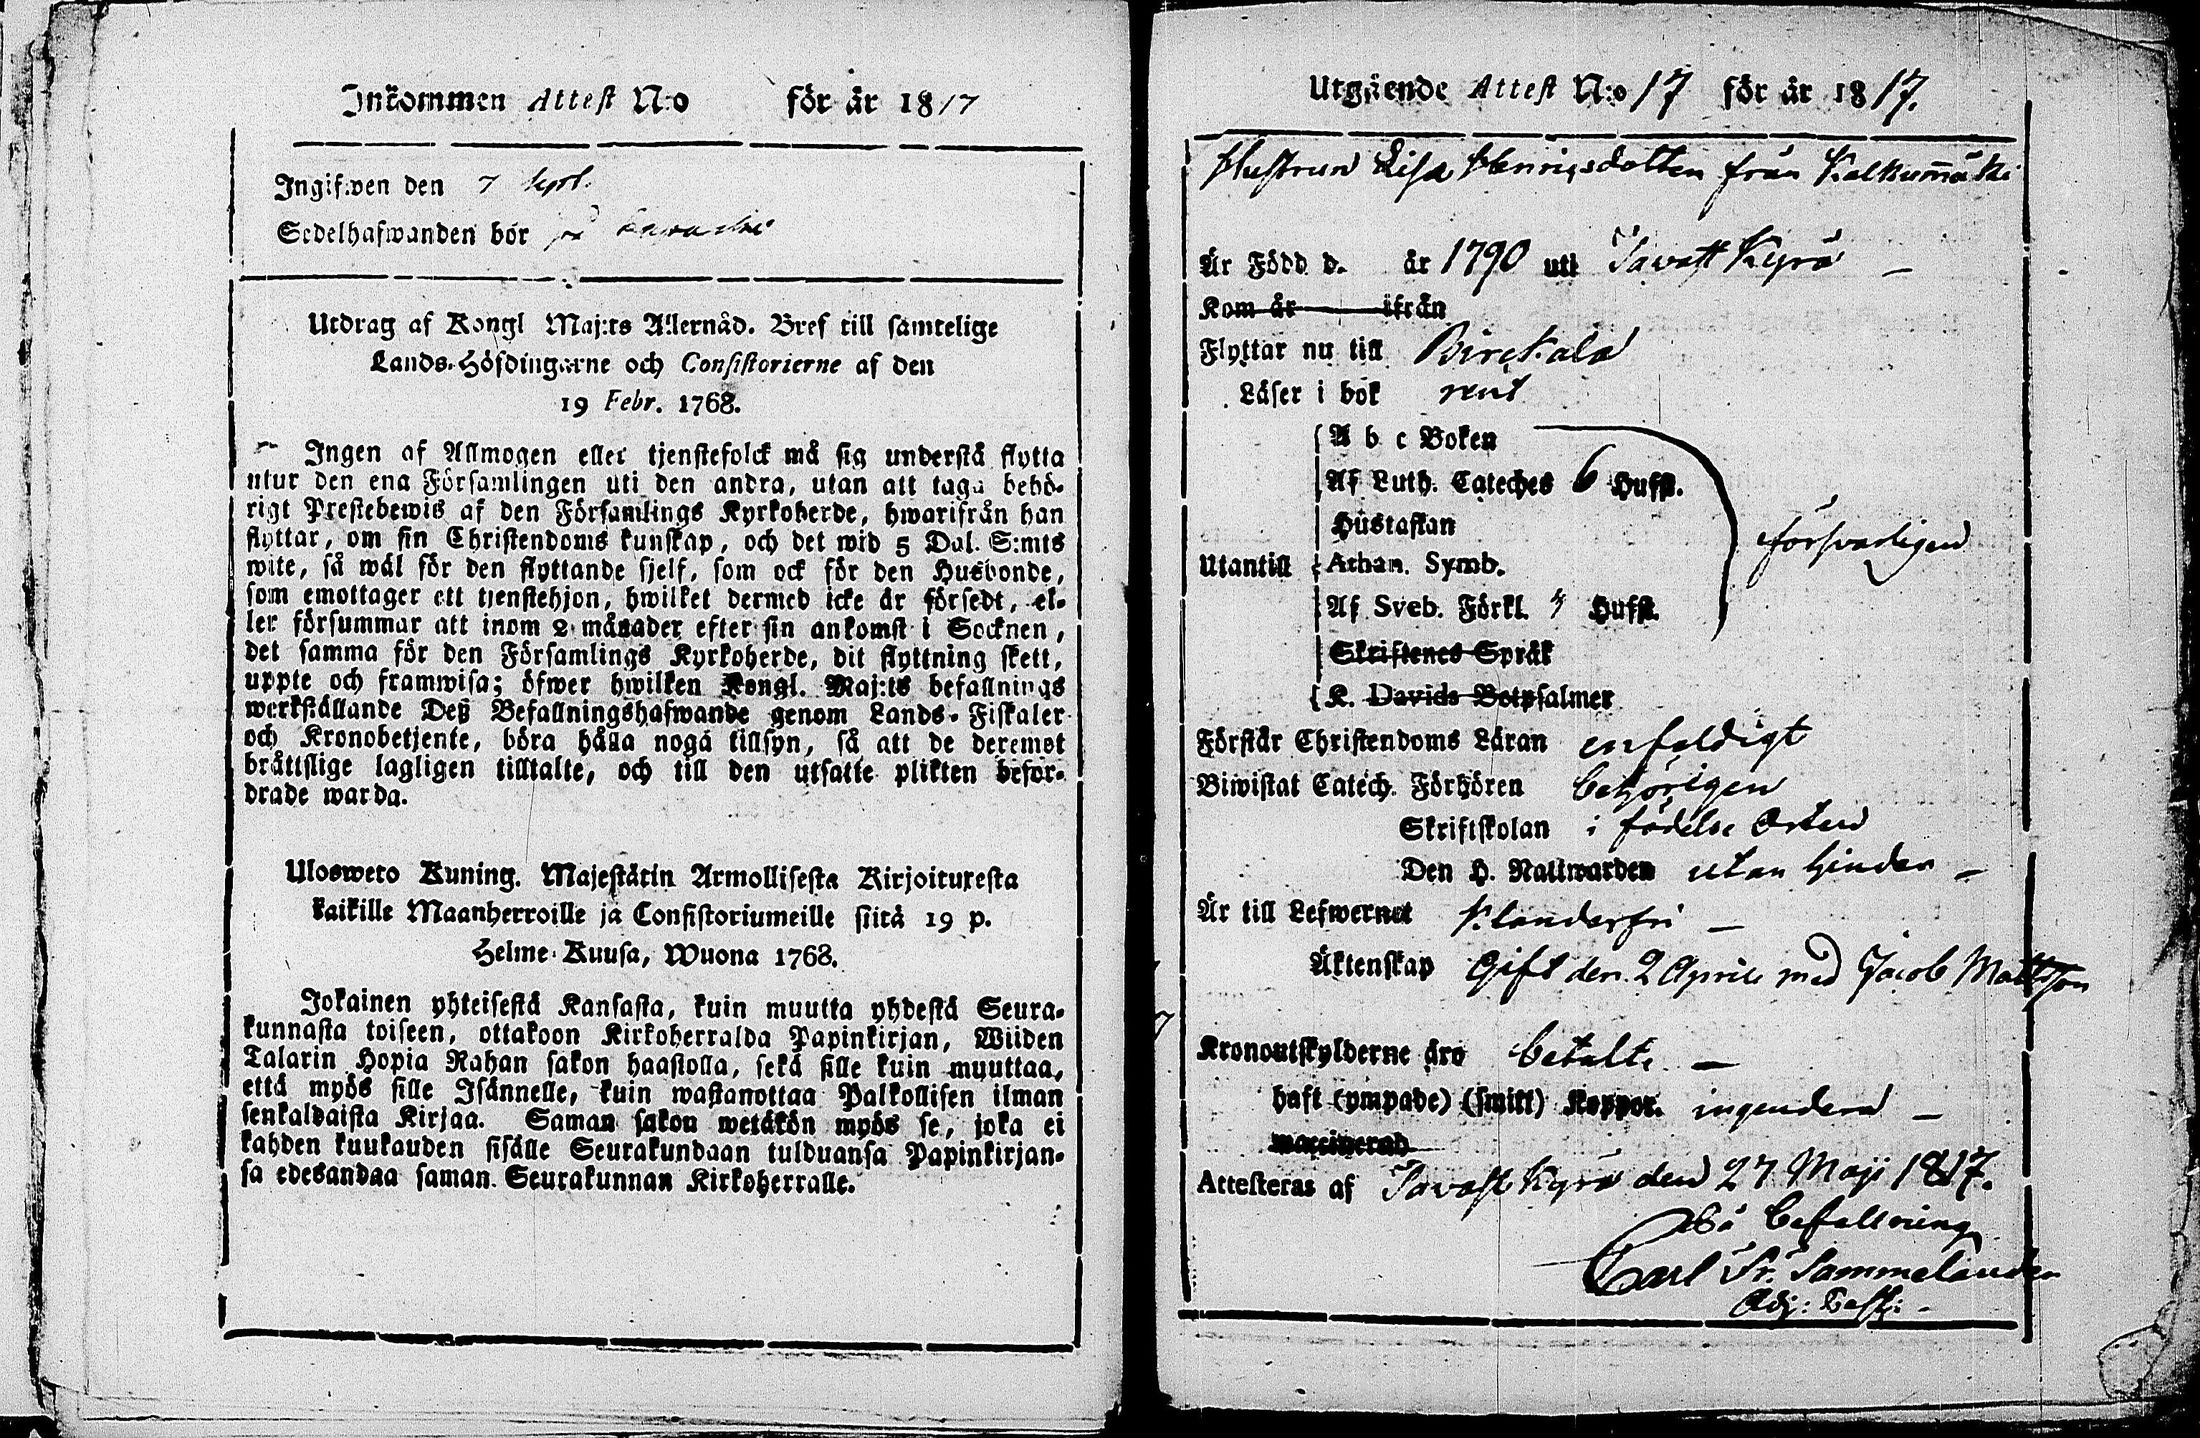 Inkommen Attest N:o för år 1817
Ingifwen den 7
Sedelhafwanden bor på
Utdrag af Kongl Maj:ts Allernåd. Bref till samtelige
Lands-Höfdingarne och Consistorierne af den
19 Febr. 1768.
Ingen af Allmogen eller tjenstefolck må sig understå flytta
utur den ena Församlingen uti den andra, utan att taga behö-
rigt Prestebewis af den Församlings Kyrkoherde, hwarifrån han
flyttar, om sin Christendoms kunskap, och det wid 5 Dal. S:mts
wite, så wäl för den flyttande sjelf, som ock för den Husbonde,
som emottager ett tjenstehjon, hwilket dermed icke är försedt, el-
ler försummar att inom 2 månader efter sin ankomst i Socknen,
det samma för den Församlings Kyrkoherde, dit flyttning skett,
uppte och framwisa; öfwer hwilken Kongl. Maj:ts befallnings
werkställande Deß Befallningshafwande genom Lands-Fiskaler
och Kronobetjente, böra hålla noga tillsyn, så att de deremot
brättslige lagligen tilltalte, och till den utsatte plikten befor-
drade warda.
Ulosweto Kuning. Majestätin Armollisesta Kirjoituxesta
kaikille Maanherroille ja Consistoriumeille siitä 19 p.
Helme-Kuusa, Wuona 1768.
Jokainen yhteisestä Kansasta, kuin muutta yhdestä Seura-
kunnasta toiseen, ottakoon Kirkoherralda Papinkirjan, Wiiden
Talarin Hopia Rahan sakon haastolla, sekä sille kuin muuttaa,
että myös sille Isännelle, kuin wastanottaa Palkollisen ilman
senkaldaista Kirjaa. Saman sakon wetäkön myös se, joka ei
kahden kuukauden sisälle Seurakundaan tulduansa Papinkirjan-
sa edesandaa saman Seurakunnan Kirkoherralle.
Utgående Attest N:o 17 för år 1817.
Hustrun Lisa Henricsdotter från Kalkumäki
Är Född d. år 1790 uti Tavast Kyrö
Kom år ifrån
Flyttar nu till Birckala
Läser i bok rent
A b c Boken
Af Luth. Cateches 6 Hufst.
Hustaflan
Utantill Athan. Symb. försvarligen
Af Sveb. Förkl. Hufst.
Skriftenes Språk
K. Davids Botpsalmer
Förstår Christendoms Läran enfaldigt
Biwistat Catech. Förhören behörigen
Skriftskolan i födelse Orten
Den H. Nattwarden utan hinder
Är till Lefwernet klanderfri
Äktenskap Gift den 2 Aprill med Jacob Mattsson
Kronoutskylderne äro betalte
haft (ympade) (smitt) Koppor. ingendera
waccinerad
Attesteras af Tavast Kyrö den 27 Maji 1817.
På befallning
Carl Fr. Sammelander
Adj: